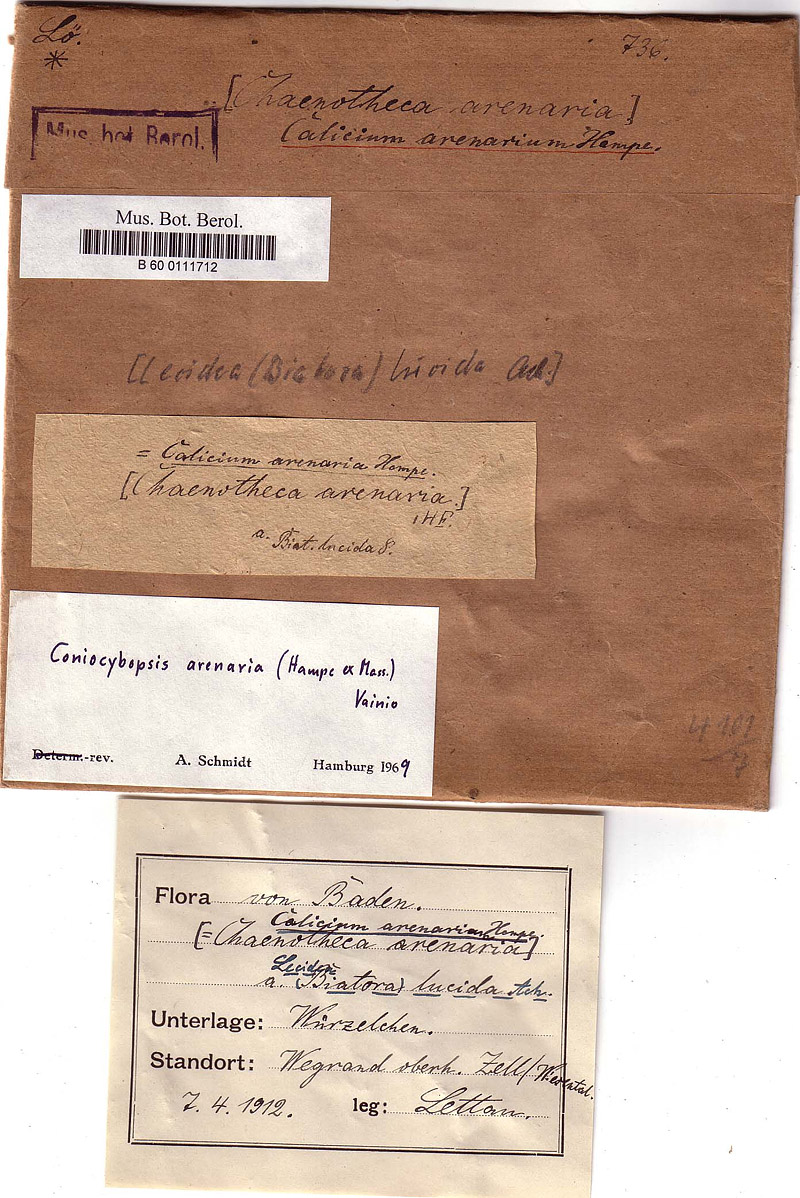 Lö.
*
736.
[Chaenotheca arenaria]
Calicium arenarium Hampe.
Mus. bot. Berol.
Mus. Bot. Berol.
B 60 0111712
[Lecidea (Biatora) lucida Ach.]
= Calicium arenaria Hampe.
[Chaenotheca arenaria.]
a. Biat. lucida
Coniocybopsis arenaria (Hampe ex Mass.)
Vainio
Determ.-rev. A. Schmidt Hamburg 1969
4101
Flora von Baden.
Calicium arenarium Hampe.
[= Chaenotheca arenaria]
Lecidea
a. (Biatora) lucida Ach.
Unterlage: Würzelchen.
Standort: Wegrand oberh. Zell/Wiesental.
7. 4. 1912. leg: Lettau.